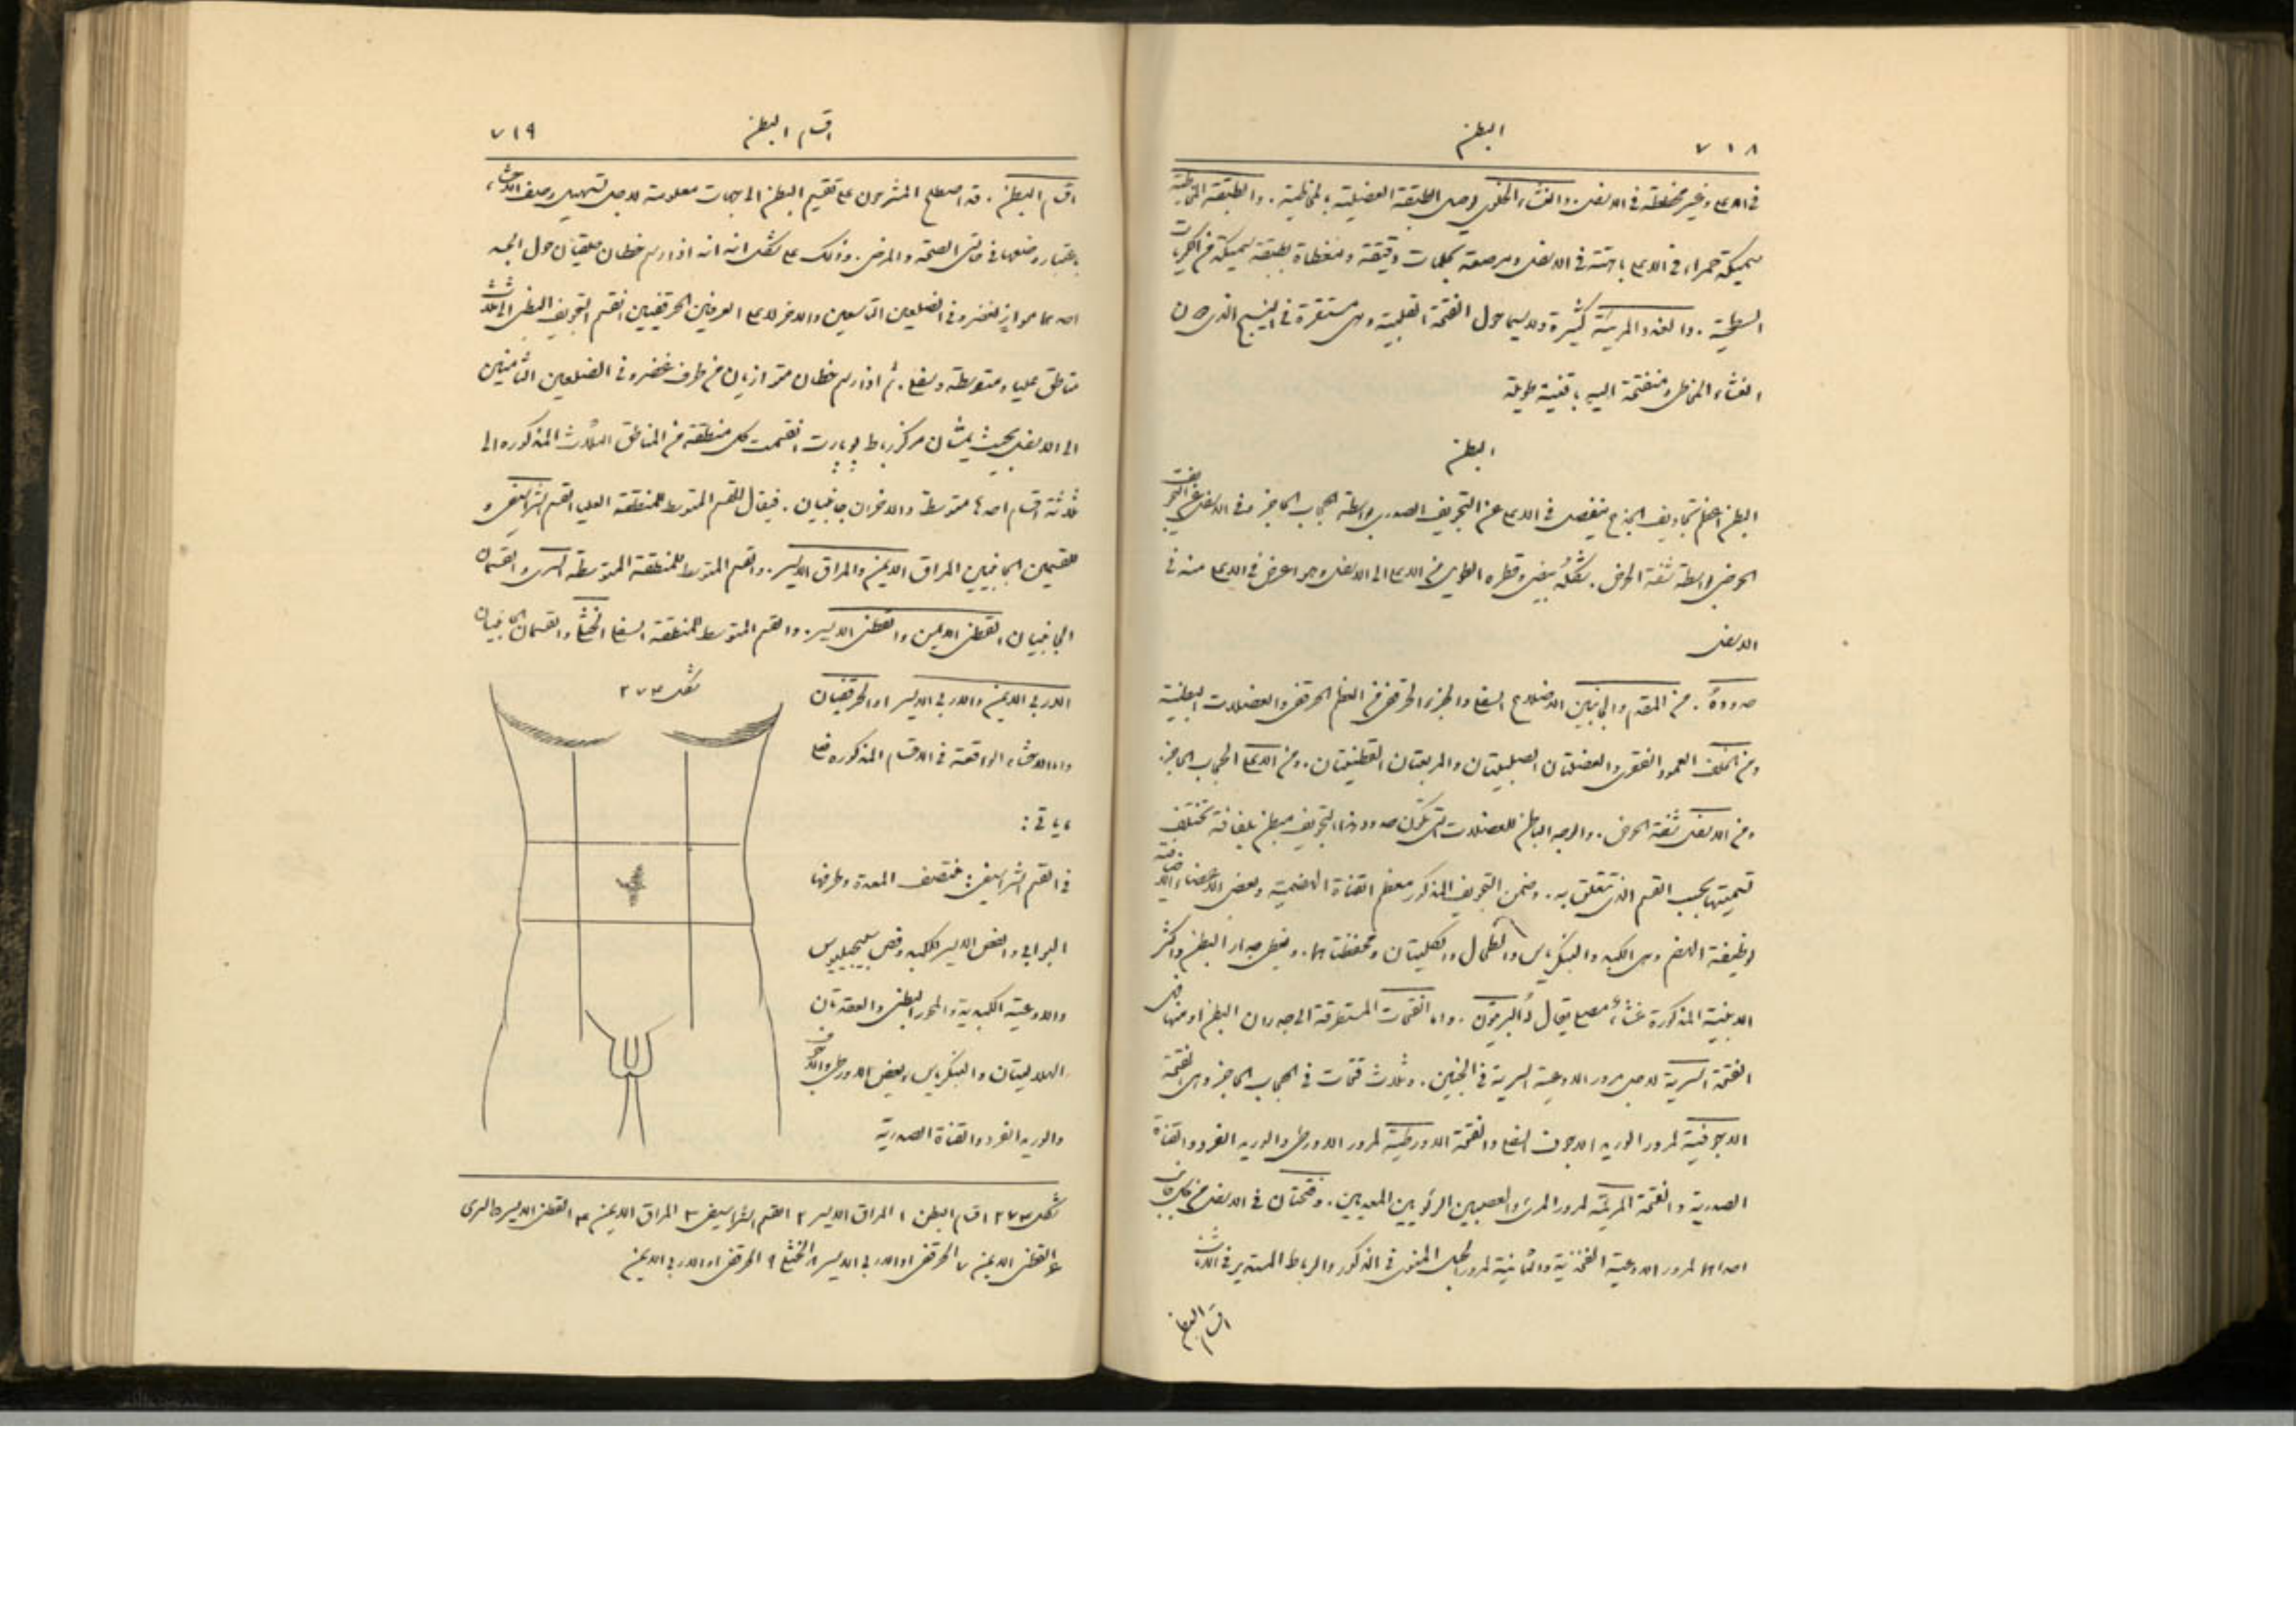 ٧١٨
البطن
في الاعلى وغير مخططة في الاسفل. والغشاء الخلوي يوصل الطبقة العضلية بالمخاطية. والطبقة المخاطية
سميكة حمراء في الاعلى باهتة في الاسفل ومرصعة بحلمات دقيقة ومغطاة بطبقة سميكة من الكريات
السطحية. والغدد المريئية كثيرة ولاسيما حول الفتحة القلبية وهي مستقرة في النسيج الذي دون
الغشاء المخاطي ومنفتحة اليه باقنية طويلة
البطن
البطن اعظم تجاويف الجذع ينفصل في الاعلى عن التجويف الصدري بواسطة الحجاب الحاجز وفي الاسفل عن التجويف
الحوضي بواسطة شفة الحوض. شكله بيضي وقطره الطويل من الاعلى الى الاسفل وهو اعرض في الاعلى منه في
الاسفل
حدوده. من المقدم والجانبين الاضلاع السفلى والجزء الحرقفي من العظم الحرقفي والعضلات البطنية
ومن الخلف العمود الفقري والعضلتان الصلبيتان والمربعتان القطنيتان. ومن الاعلى الحجاب الحاجز.
ومن الاسفل شفة الحوض. والوجه الباطن للعضلات التي تكون حدود هذا التجويف مبطن بلفافة تختلف
تسميتها بحسب القسم الذي تتعلق به. وضمن التجويف المذكور معظم القناة الهضمية وبعض الاعضاء الاضافية
لوظيفة الهضم وهي الكبد والبنكرياس والطحال والكليتان ومحفظتاهما. ويغطي جدار البطن واكثر
الابنية المذكورة غشاء مصلي يقال له البريتون. واما الفتحات المستطرقة الى جدران البطن او منها فهي
الفتحة السرية لاجل مرور الاوعية السرية في الجنين. وثلاث فتحات في الحجاب الحاجز وهي الفتحة
الاجوفية لمرور الوريد الاجوف السفلي والفتحة الاورطية لمرور الاورطي والوريد الفرد والقناة
الصدرية والفتحة المريئية لمرور المريء والعصبين الرئويين المعديين. وفتحتان في الاسفل من كل جانب
احداهما لمرور الاوعية الفخذية والثانية لمرور الحبل المنوي في الذكور والرباط المستدير في الاناث
اقسام البطن
اقسام البطن
٧١٩
اقسام البطن. قد اصطلح المشرحون على تقسيم البطن الى جهات معلومة لاجل تسهيل وصف الاحشاء
باعتبار وضعها في حالتي الصحة والمرض. وذلك على شكل انه اذا رسم خطان حلقيان حول الجسد
احدهما مواز لغضروفي الضلعين التاسعين والاخر لاعلى العرفين الحرقفيين انقسم التجويف البطني الى ثلاث
مناطق عليا ومتوسطة وسفلى. ثم اذا رسم خطان متوازيان من طرف غضروفي الضلعين الثامنين
الى الاسفل بحيث يمسان مركز رباط بوبارت انقسمت كل منطقة من المناطق الثلاث المذكورة الى
ثلاثة اقسام احدها متوسط والاخران جانبيان. فيقال للقسم المتوسط للمنطقة العليا القسم الشراسيفي و
للقسمين الجانبيين المراق الايمن والمراق الايسر. والقسم المتوسط للمنطقة المتوسطة السري والقسمان
الجانبيان القطني الايمن والقطني الايسر. والقسم المتوسط للمنطقة السفلى الخثلي والقسمان الجانبيان
الاربي الايمن والاربي الايسر او الحرقفيان
شكل ٢٧٣
واما الاحشاء الواقعة في الاقسام المذكورة فعلى
ما ياتي:
في القسم الشراسيفي: منتصف المعدة وطرفها
البوابي والفص الايسر للكبد وفص سبيجيليوس
والاوعية الكبدية والمحور البطني والعقدتان
الهلاليتان والبنكرياس وبعض الاورطي والاجوف
والوريد الفرد والقناة الصدرية
شكل ٢٧٣ اقسام البطن ١ المراق الايسر ٢ القسم الشراسيفي ٣ المراق الايمن ٤ القطني الايسر ٥ السري
٦ القطني الايمن ٧ الحرقفي او الاربي الايسر ٨ الخثلي ٩ الحرقفي او الاربي الايمن